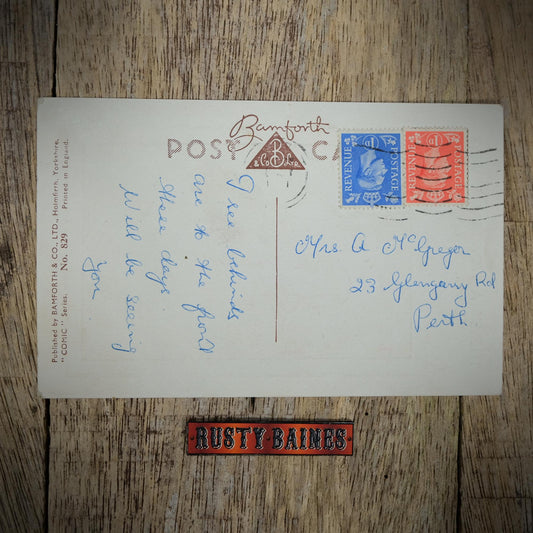 Bamforth
POST CA
B
& Co Ltd
Published by BAMFORTH & CO., LTD., Holmfirth, Yorkshire.
"COMIC" Series. No. 829 Printed in England.
Tree behinds
are to the front
these days.
Will be seeing
you
POSTAGE 1D REVENUE
POSTAGE REVENUE
Mrs. A McGregor
23 Glengarry Rd
Perth
RUSTY BAINES